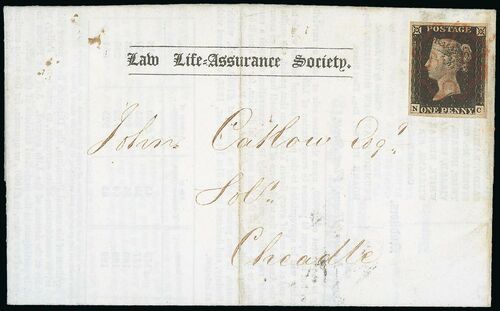 POSTAGE
N ONE PENNY C
Law Life-Assurance Society.
John Catlow Esqr.
Solr.
Cheadle